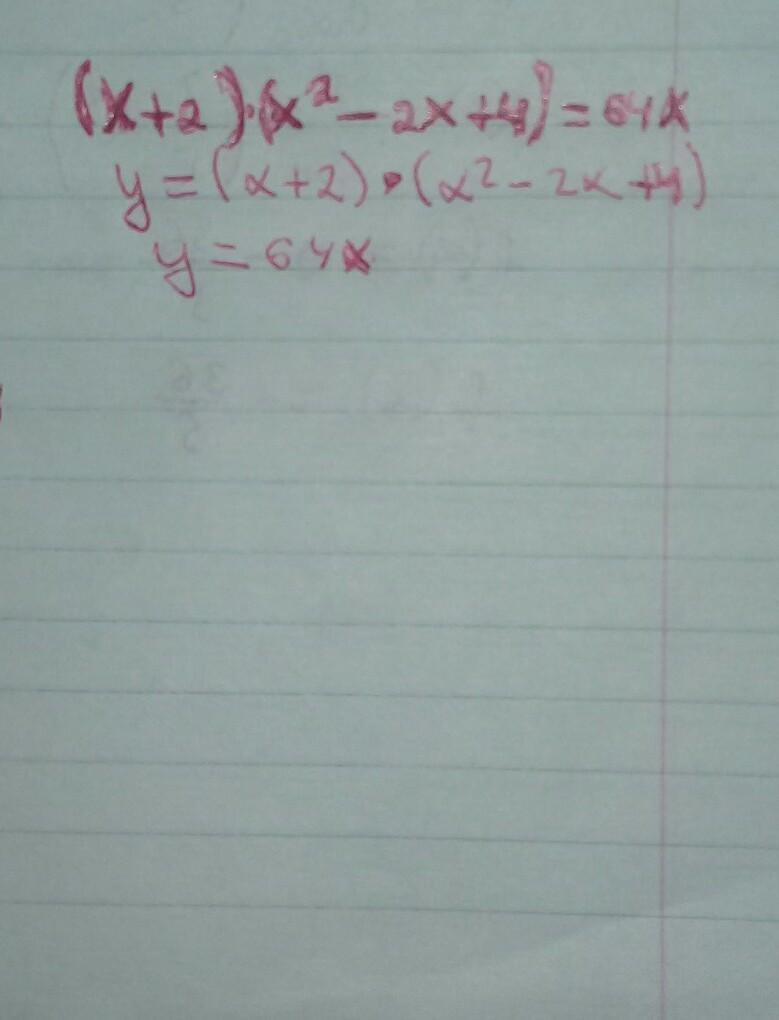 (x+2)·(x²-2x+4)=64x
y=(x+2)·(x²-2x+4)
y=64x